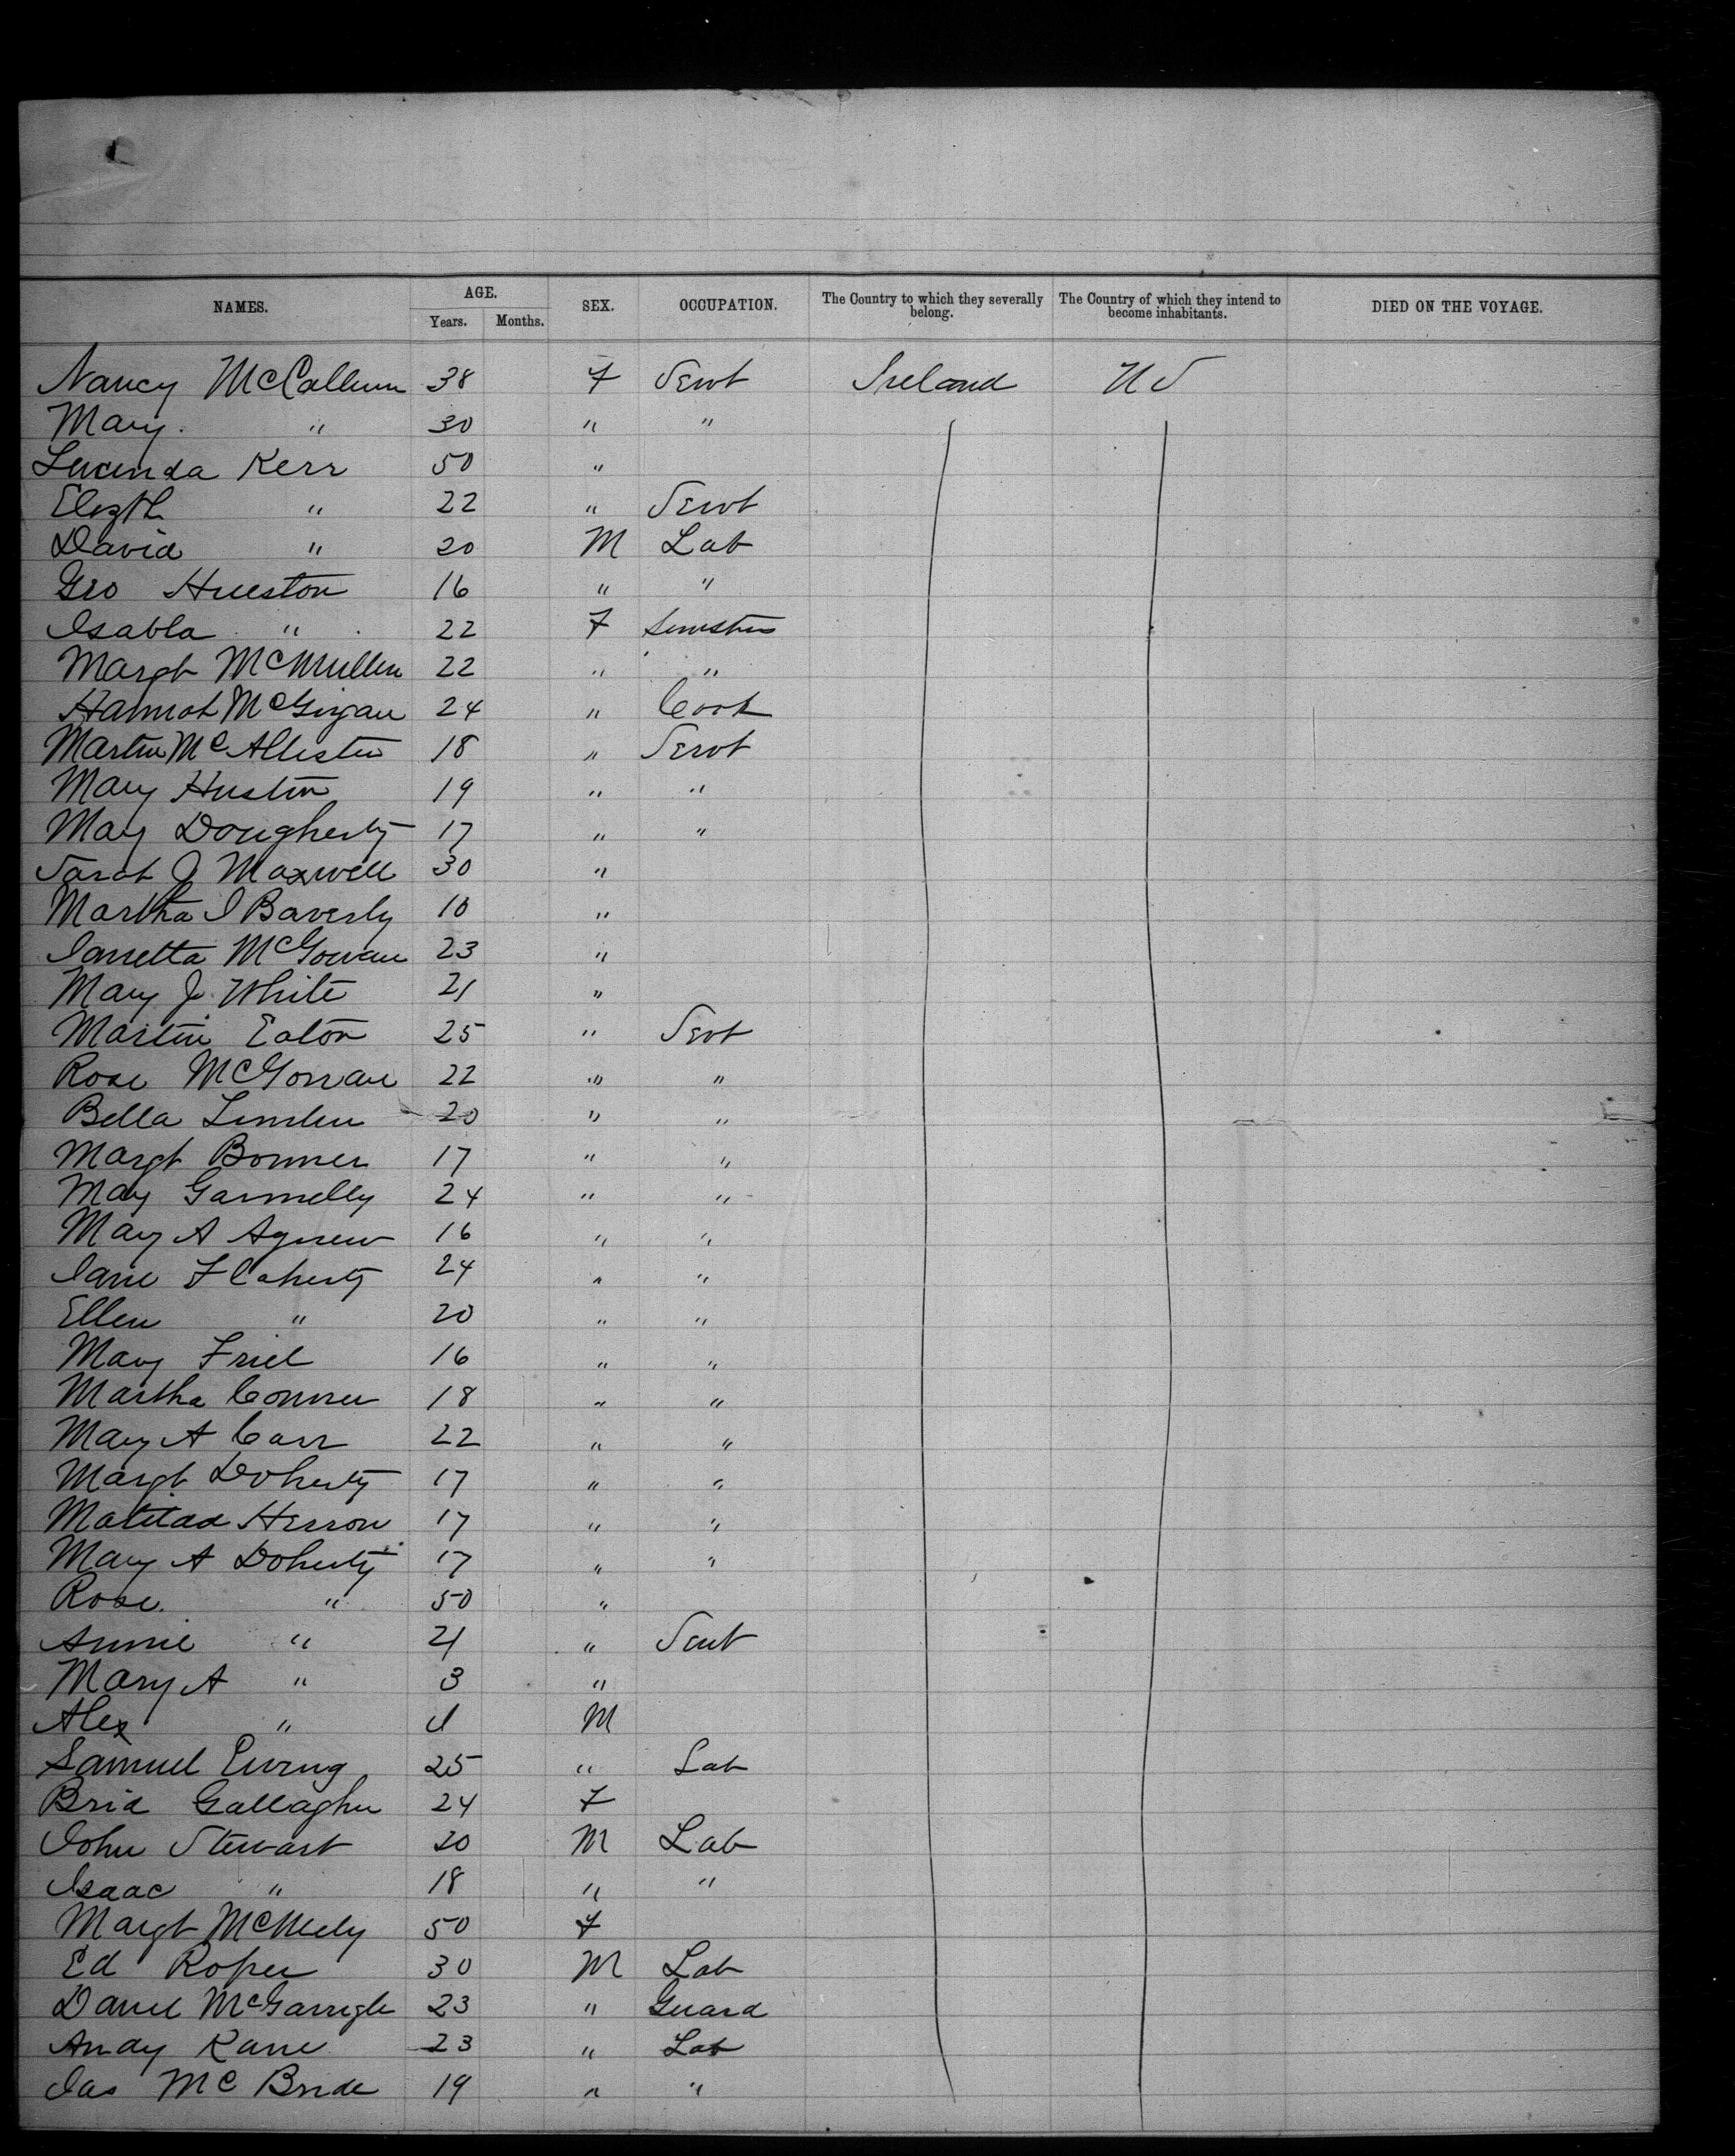 NAMES. AGE. SEX. OCCUPATION. The Country to which they severally belong. The Country of which they intend to become inhabitants. DIED ON THE VOYAGE.
Years. Months.
Nancy McCallum 38 F Servt Ireland US
Mary " 30 " "
Lucinda Kerr 50 "
Elizth " 22 " Servt
David " 20 M Lab
Geo Hueston 16 " "
Isabla " 22 F
Margt McMullen 22 " "
Hannah McGirgan 24 " Cook
Martin McAllister 18 " Servt
Mary Huston 19 " "
May Dougherty 17 " "
Sarah J Maxwell 30 "
Martha J Baverly 10 "
Janretta McGowan 23 "
Mary J. White 21 "
Martin Eaton 25 " Servt
Rose McGowan 22 " "
Bella 20 " "
Margt Bonner 17 " "
May Garmelly 24 " "
Mary A Agnew 16 " "
Jane Flaherty 24 " "
Ellen " 20 " "
Mary Friel 16 " "
Martha Conner 18 " "
Mary A Carr 22 " "
Margt Doherty 17 " "
Matilda Herron 17 " "
Mary A Doherty 17 " "
Rose. " 50 "
Annie " 21 " Servt
Mary A " 3 "
Alex " M
Samuel Ewing 25 " Lab
Brid Gallagher 24 F
John Stewart 20 M Lab
Isaac " 18 " "
Margt McNeely 50 F
Ed Roper 30 M Lab
Daniel McGarrigle 23 " Guard
Andy Kane 23 " Lab
Jas McBride 19 " "